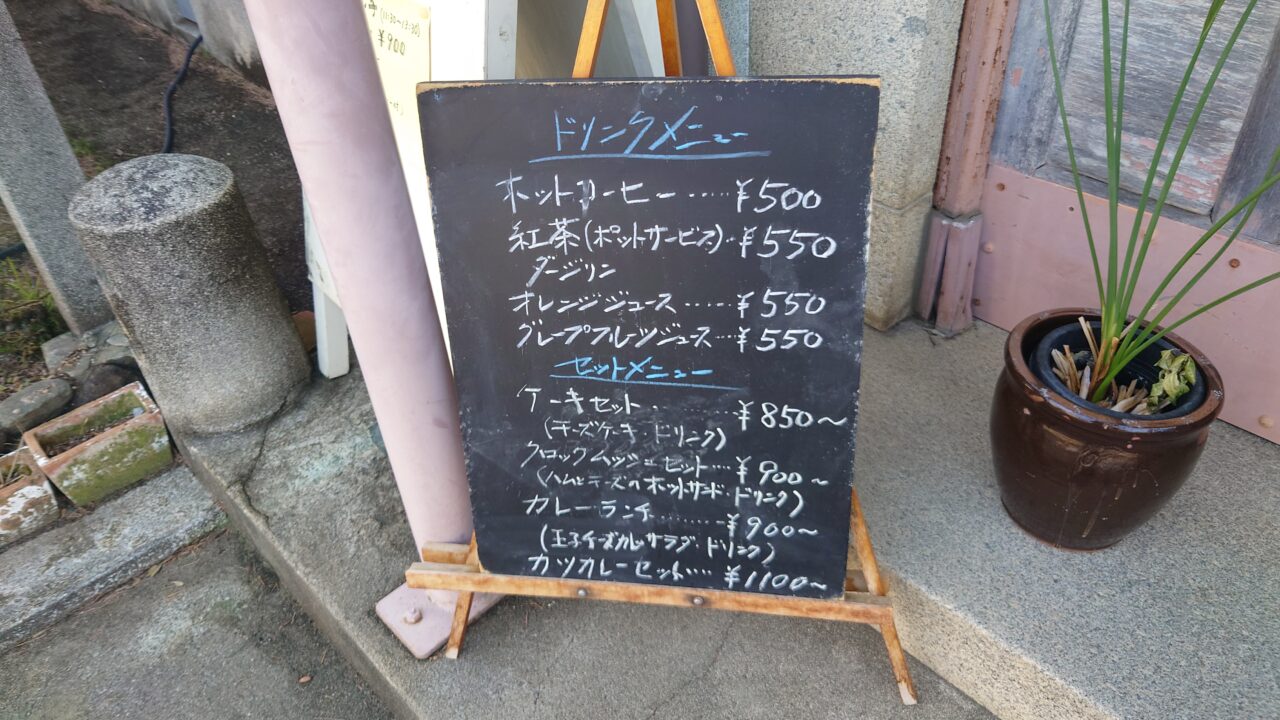 (11:30～13:30)
¥900
ドリンクメニュー
ホットコーヒー……¥500
紅茶(ポットサービス)‥¥550
ダージリン
オレンジジュース……¥550
グレープフルーツジュース…¥550
セットメニュー
ケーキセット.………¥850～
(チーズケーキ・ドリンク)
クロックムッシューセット….¥900～
(ハムとチーズのホットサンド・ドリンク)
カレーランチ………¥900～
(玉子チーズカレー サラダ・ドリンク)
カツカレーセット….¥1100～